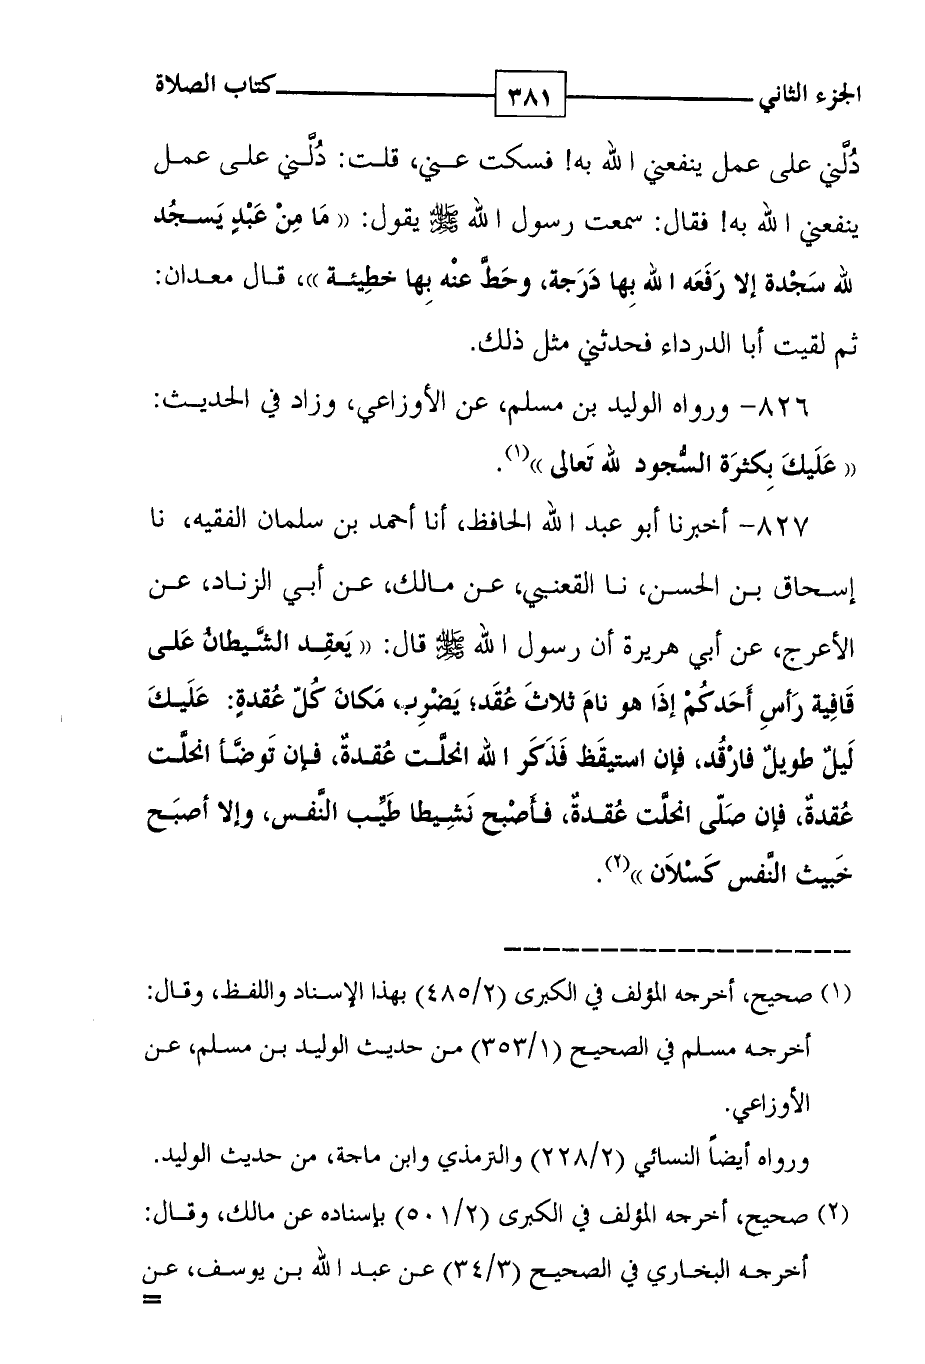 الجزء الثاني ٣٨١ كتاب الصلاة
دُلَّني على عمل ينفعني الله به! فسكت عني، قلت: دُلَّني على عمل
ينفعني الله به! فقال: سمعت رسول الله ﷺ يقول: (( مَا مِنْ عَبْدٍ يَسجُد
لله سَجْدة إلا رَفَعَه الله بِها دَرَجة، وحَطَّ عنْه بِها خطِيئة ))، قال معدان:
ثم لقيت أبا الدرداء فحدثني مثل ذلك.
٨٢٦- ورواه الوليد بن مسلم، عن الأوزاعي، وزاد في الحديث:
(( عَلَيكَ بِكثرَة السُّجود لله تَعالى ))(١).
٨٢٧- أخبرنا أبو عبد الله الحافظ، أنا أحمد بن سلمان الفقيه، نا
إسحاق بن الحسن، نا القعنبي، عن مالك، عن أبي الزناد، عن
الأعرج، عن أبي هريرة أن رسول الله ﷺ قال: (( يَعقِد الشَّيطانُ عَلى
قَافِية رَأسِ أَحَدكُمْ إذَا هو نامَ ثلاثَ عُقَد؛ يَضْرِب، مَكانَ كُلّ عُقدةٍ: عَلَيكَ
لَيلٌ طويلٌ فارْقُد، فإن استيقَظ فَذَكَر الله انحلَّت عُقدةٌ، فإن تَوضَّأ انحلَّت
عُقدةٌ، فإن صَلّى انحلَّت عُقدةٌ، فأصْبح نَشِيطا طَيِّب النَّفس، وإلا أصبَح
خَبيث النَّفس كَسْلاَن ))(٢).
(١) صحيح، أخرجه المؤلف في الكبرى (٤٨٥/٢) بهذا الإسناد واللفظ، وقال:
أخرجه مسلم في الصحيح (٣٥٣/١) من حديث الوليد بن مسلم، عن
الأوزاعي.
ورواه أيضاً النسائي (٢٢٨/٢) والترمذي وابن ماجة، من حديث الوليد.
(٢) صحيح، أخرجه المؤلف في الكبرى (٥٠١/٢) بإسناده عن مالك، وقال:
أخرجه البخاري في الصحيح (٣٤/٣) عن عبد الله بن يوسف، عن
=